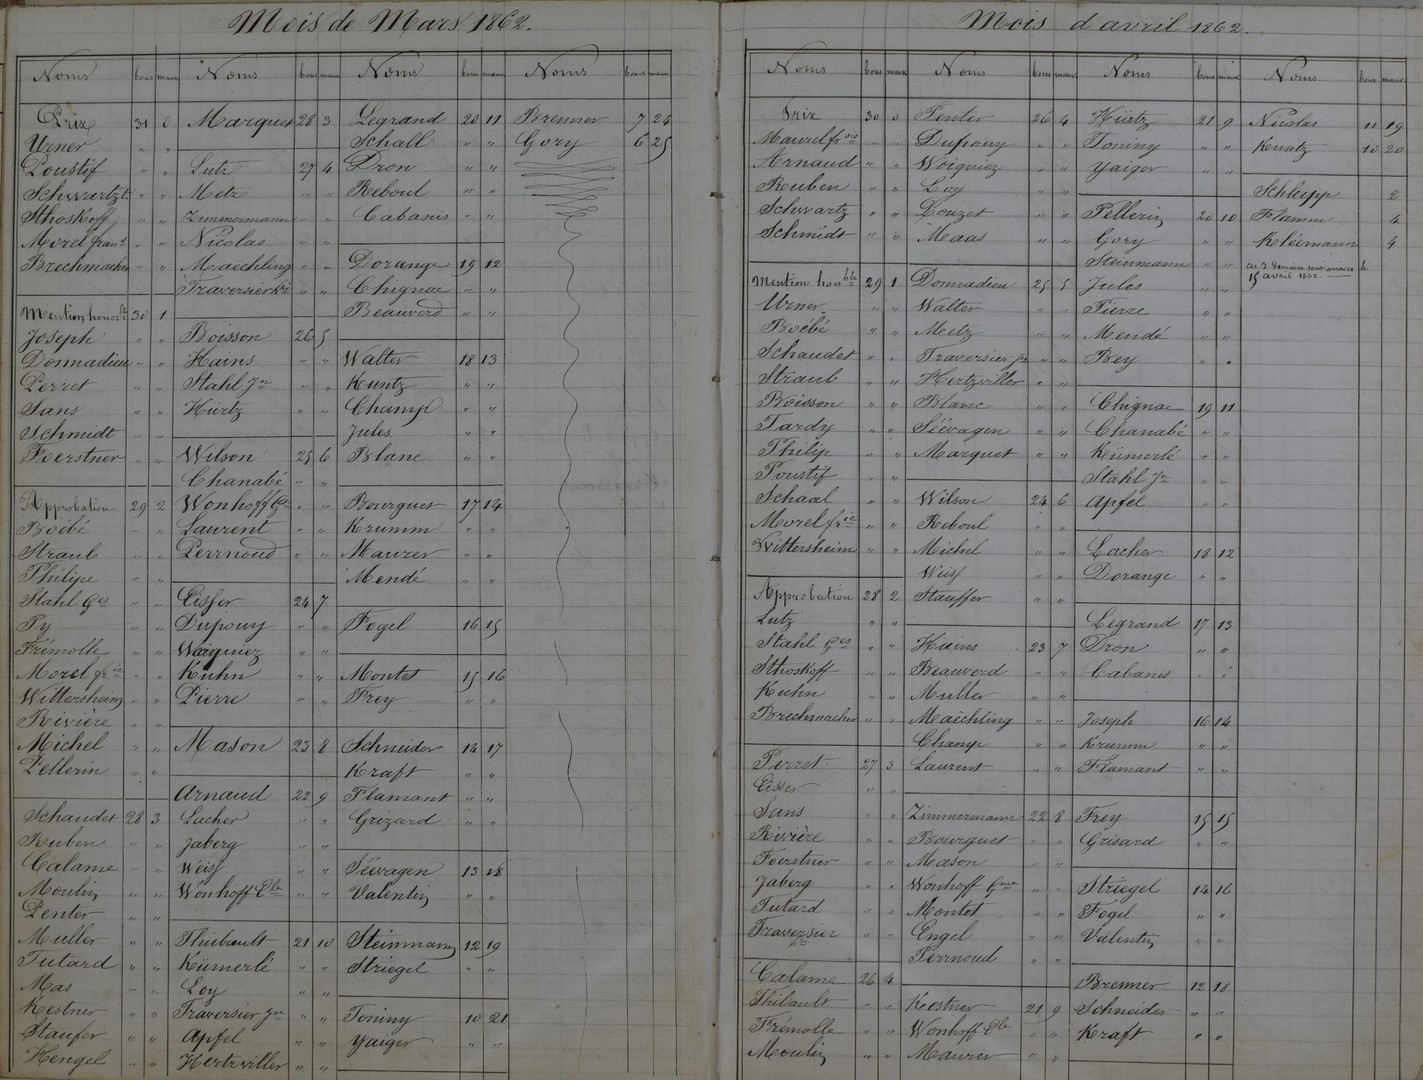 Mois de Mars 1862.
Noms bons mauv
Prix 31 0
Urner " "
Poustif " "
Schwartzt " "
Sthoskoff " "
Morel franc " "
Brechmacher " "
Mention honor.le 30 1
Joseph " "
Donnadieu " "
Perret " "
Sans " "
Schmidt " "
Foerstner " "
Approbation 29 2
Boëbé "
Straub " "
Philipe " "
Stahl Ges " "
Py " "
Frémolle " "
Morel fric " "
Wittersheim " "
Rivière " "
Michel " "
Pellerin " "
Schaudet 28 3
Ruben " "
Calame " "
Moulin " "
Penter " "
Muller " "
Tutard " "
Mas " "
Kestner " "
Staufer " "
Hengel " "
Noms bons mauv
Marquet 28 3
Lutz 27 4
Metz " "
Zimmermann " "
Nicolas " "
Maëchling " "
Traversier " "
Boisson 26 5
Hains " "
Stahl Jne " "
Hürtz " "
Wilson 25 6
Chanabé " "
Wonhoff Gme " "
Laurent " "
Perrnoud " "
Eisser 24 7
Dupouy " "
Woiquiez " "
Kuhn " "
Pierre " "
Mason 23 8
Arnaud 22 9
Lacher " "
Jaberg " "
Weiss " "
Wonhoff Ele " "
Thiebault 21 10
Kümerlé " "
Loy " "
Traversier Jne " "
Apfel " "
Hertzviller " "
Noms bons mauv
Legrand 20 11
Schall " "
Dron " "
Reboul " "
Cabanis " "
Dorange 19 12
Chignac " "
Beauverd " "
Walter 18 13
Kuntz " "
Champ " "
Jules " "
Blanc " "
Bourgues 17 14
Krumm " "
Maurer " "
Mendé " "
Fogel 16 15
Montet 15 16
Frey " "
Schneider 14 17
Kraft " "
Flamant " "
Grizard " "
Siévagen 13 18
Valentin " "
Steinmann 12 19
Striegel " "
Toniny 10 21
Yaiger " "
Noms bons mauv
Brenner 7 24
Gory 6 25
Mois d'avril 1862.
Noms bons mauv
Prix 30 0
Maurel frois " "
Arnaud " "
Ruben " "
Schwartz " "
Schmidt " "
Mention honble 29 1
Urner " "
Boëbé " "
Schaudet " "
Straub " "
Boisson " "
Tardy " "
Philip " "
Poustif " "
Schaal " "
Morel fric " "
Wittersheim " "
Approbation 28 2
Lutz " "
Stahl Ges " "
Sthoskoff " "
Kuhn " "
Brechmacher " "
Perret 27 3
Eisser " "
Sans " "
Rivière " "
Foerstner " "
Jaberg " "
Tutard " "
Traversier " "
Calame 26 4
Thibault " "
Frémolle " "
Moulin " "
Noms bons mauv
Penter 26 4
Dupouy " "
Woiquiez " "
Loy " "
Douzet " "
Maas " "
Donnadieu 25 5
Walter " "
Metz " "
Traversier jne " "
Hertzviller " "
Blanc " "
Siévagen " "
Marquet " "
Wilson 24 6
Reboul " "
Michel " "
Weiss " "
Stauffer " "
Hains 23 7
Beauverd " "
Muller " "
Maëchling " "
Champ " "
Laurent " "
Zimmermann 22 8
Bourguet " "
Mason " "
Wonhoff Gme " "
Montet " "
Engel " "
Perrnoud " "
Kestner 21 9
Wonhoff Ele " "
Maurer " "
Noms bons mauv
Hürtz 21 9
Toniny " "
Yaiger " "
Pellerin 20 10
Gory " "
Steinmann " "
Jules " "
Pierre " "
Mendé " "
Bey " "
Chignac 19 11
Chanabé " "
Kümerlé " "
Stahl Jne " "
Apfel " "
Lacher 18 12
Dorange " "
Legrand 17 13
Dron " "
Cabanis " "
Joseph 16 14
Krumm " "
Flamant " "
Frey 15 15
Grisard " "
Striegel 14 16
Fogel " "
Valentin " "
Brenner 12 18
Schneider " "
Kraft " "
Noms bons mauv
Nicolas 11 19
Kuntz 10 20
Schlepp 2
Flamm 4
Kléemann 4
ces 3 derniers sont arrivés le
15 avril 1862.